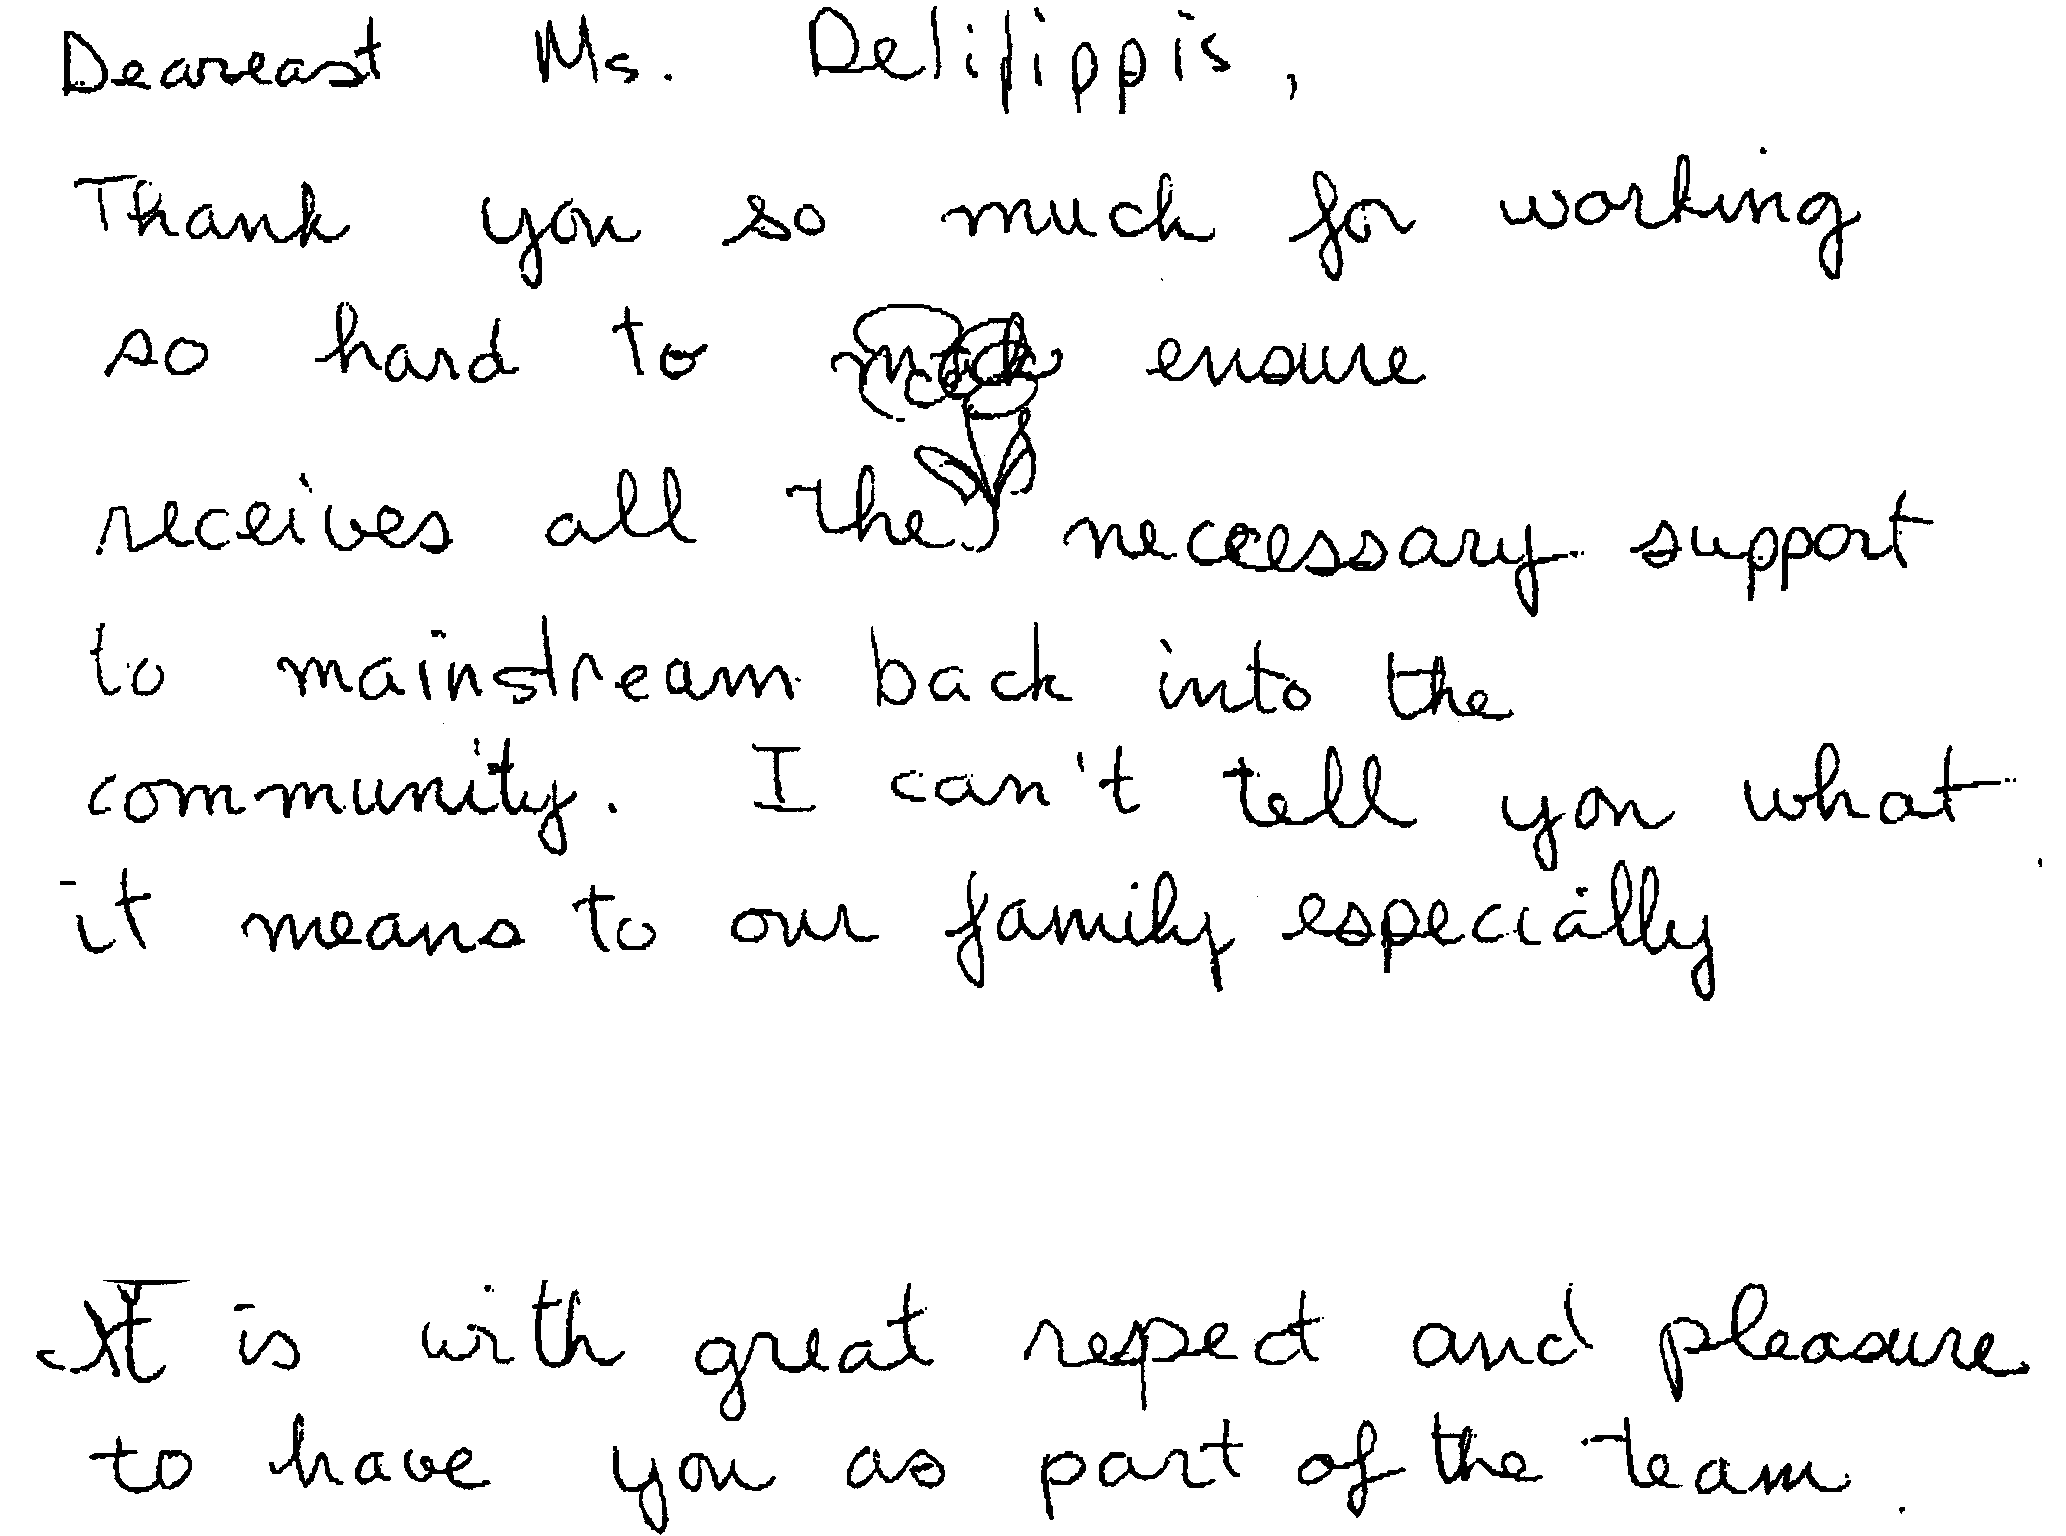 Deareast Ms. Delifippis,
Thank you so much for working
so hard to ensure
receives all the necessary support
to mainstream back into the
community. I can't tell you what
it means to our family especially
It is with great respect and pleasure
to have you as part of the team.